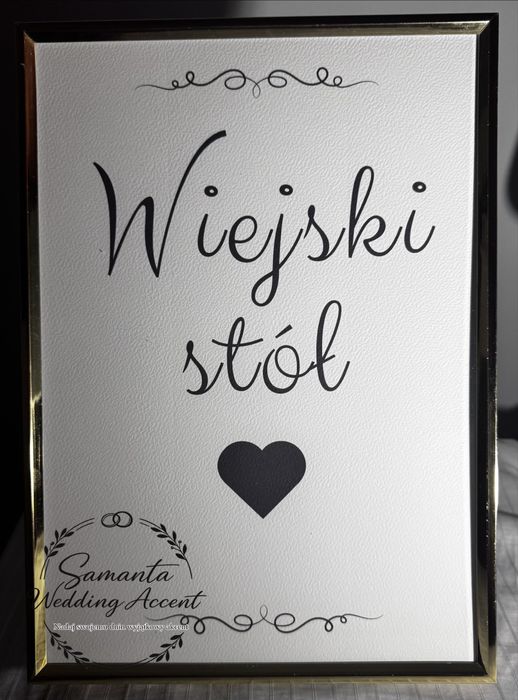 Wiejski
stół
Samanta
Wedding Accent
Nadaj swojemu dniu wyjątkowy akcent